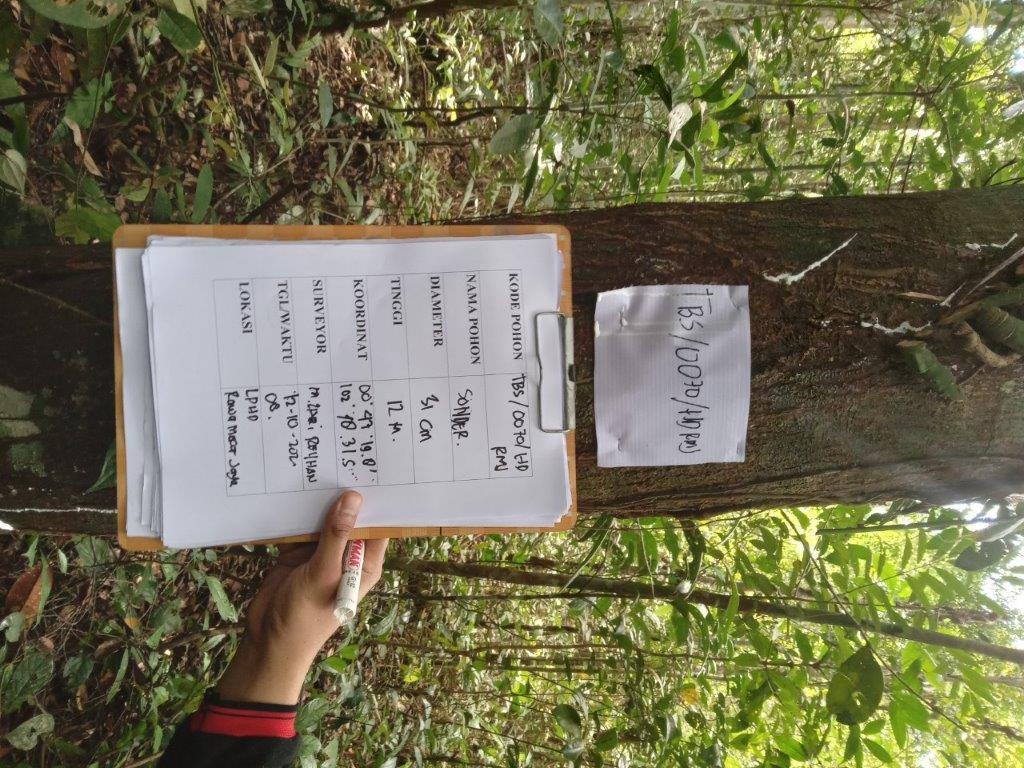 TBS/0070/HD RMJ
KODE POHON TBS/0070/HD
RMJ
NAMA POHON SONDER.
DIAMETER 31 cm
TINGGI 12 M.
KOORDINAT
SURVEYOR REYHAN
TGL/WAKTU 12-10-202
08.
LOKASI LPHD
Rawa Mecar Jaya
YMAN